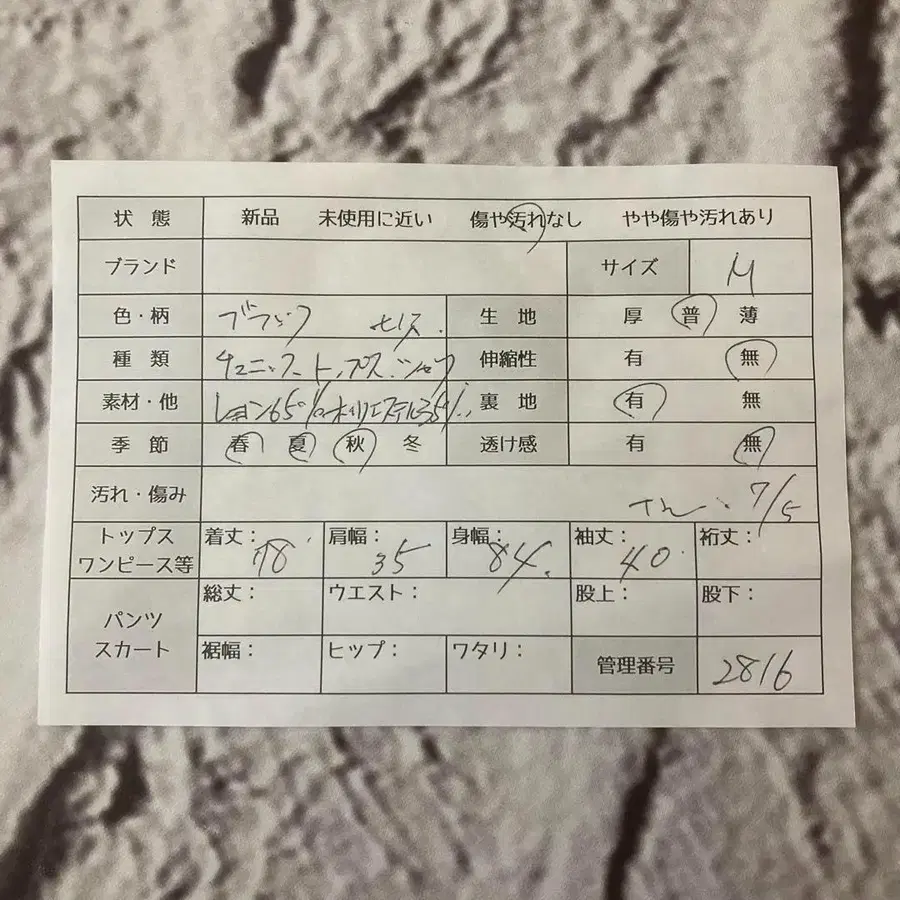 状態 新品 未使用に近い 傷や汚れなし やや傷や汚れあり
ブランド サイズ M
色・柄 ブラック 生地 厚 普 薄
種類 チュニック トップス シャツ 伸縮性 有 無
素材・他 レーヨン65% ポリエステル35% 裏地 有 無
季節 春 夏 秋 冬 透け感 有 無
汚れ・傷み 7/5
トップス ワンピース等 着丈: 78 肩幅: 35 身幅: 84. 袖丈: 40 裄丈:
パンツ スカート 総丈: ウエスト: 股上: 股下:
裾幅: ヒップ: ワタリ: 管理番号 2816